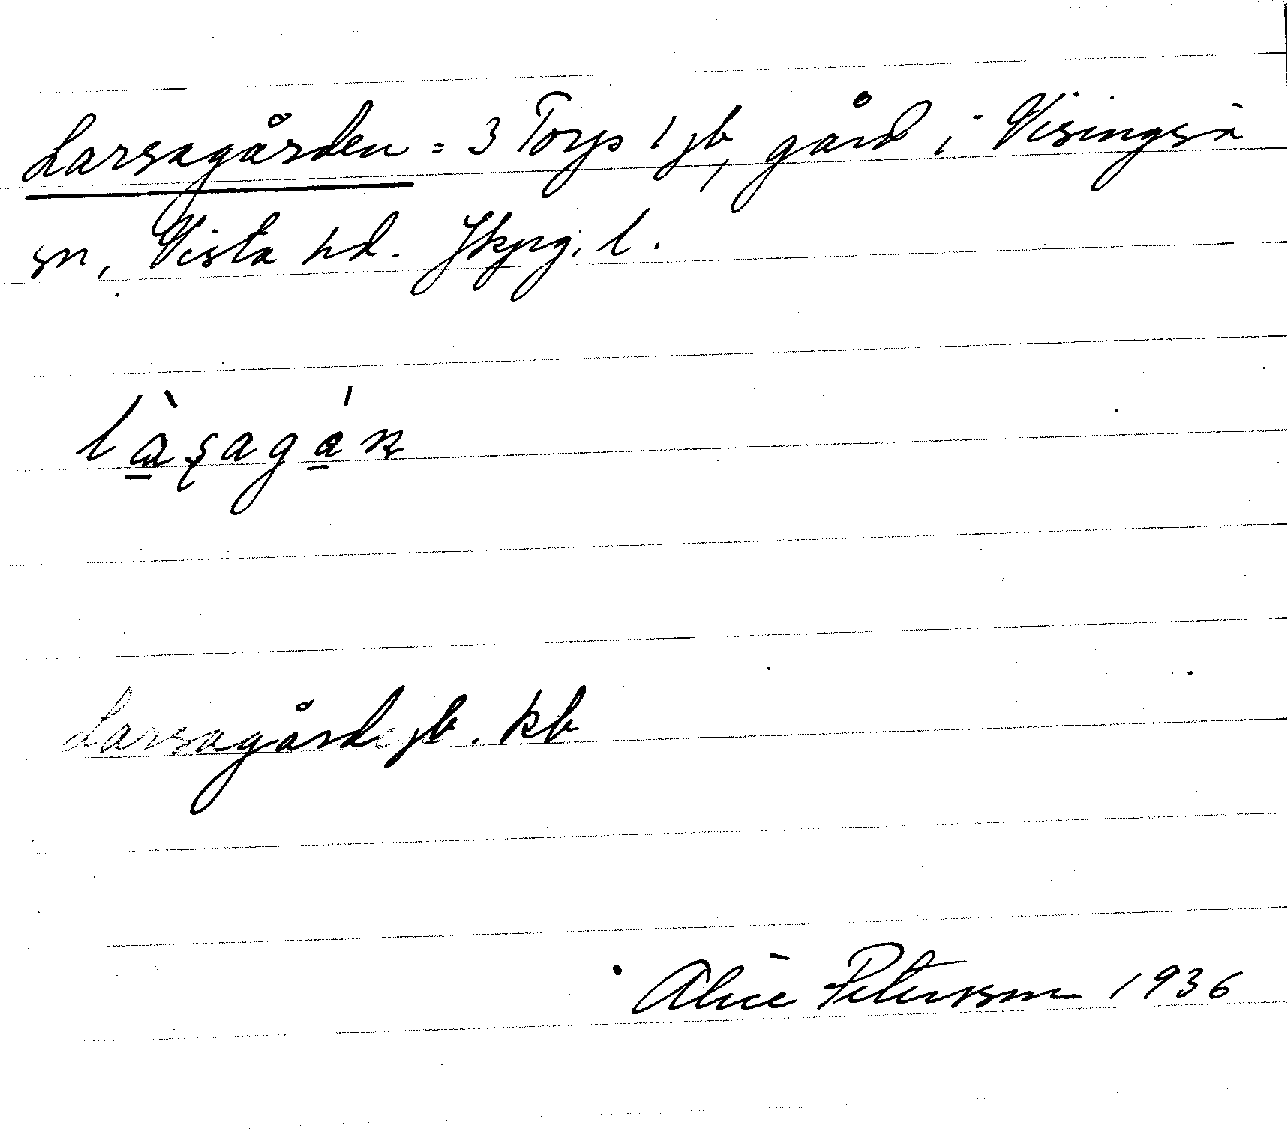 Larsagården = 3 Torp 1 jb, gård i Visingsö
sn, Vista hd. Jkpg. l.
là̱ʂagá̱ɳ
Larsagård jb. kb
Alice Petersson 1936